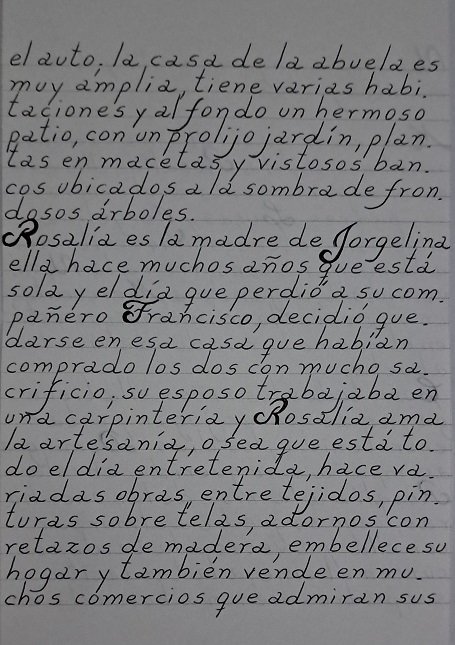 el auto. la casa de la abuela es
muy amplia, tiene varias habi.
taciones y al fondo un hermoso
patio, con un prolijo jardín, plan.
tas en macetas y vistosos ban.
cos ubicados a la sombra de fron.
dosos árboles.
Rosalía es la madre de Jorgelina
ella hace muchos años que está
sola y el día que perdió a su com.
pañero Francisco, decidió que.
darse en esa casa que habían
comprado los dos con mucho sa.
crificio, su esposo trabajaba en
una carpintería y Rosalía, ama
la artesanía, o sea que está to.
do el día entretenida, hace va.
riadas obras, entre tejidos, pin.
turas sobre telas, adornos, con
retazos de madera, embellece su
hogar y también vende en mu.
chos comercios que admiran sus